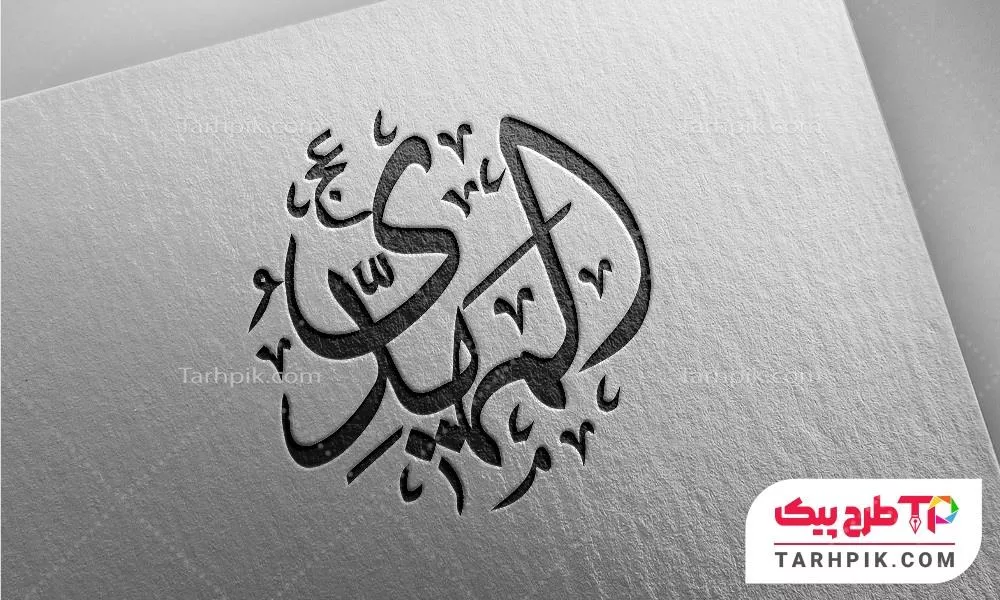 Tarhpik.com Tarhpik.com
المهدی
عج
Tarhpik.com Tarhpik.com
طرح پیک TP
TARHPIK.COM